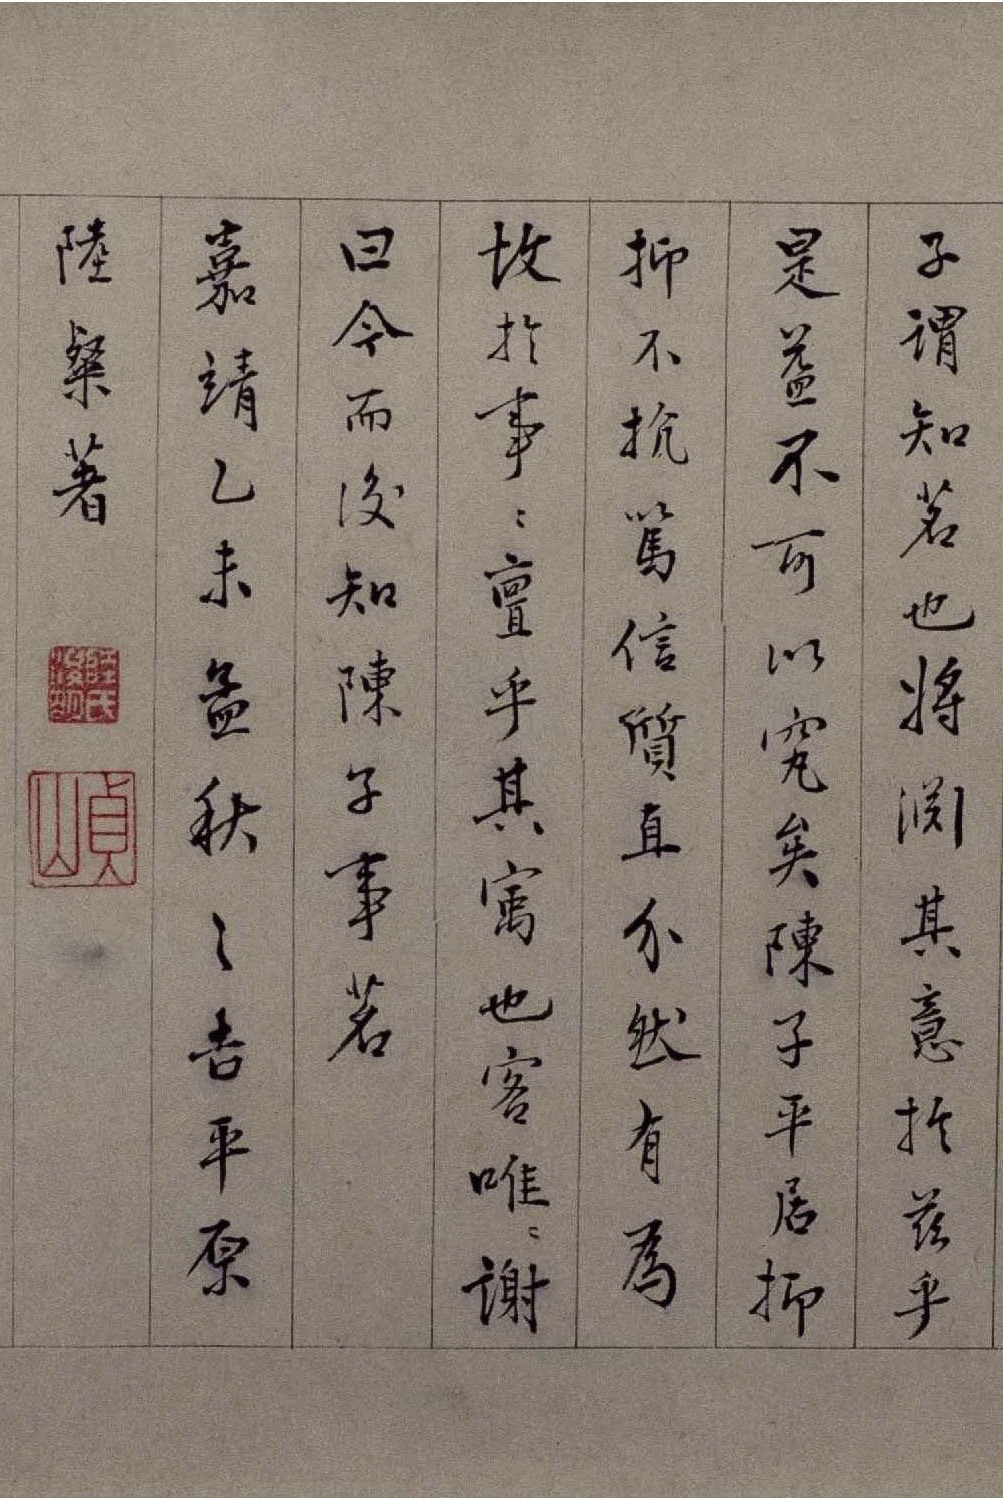 子謂知茗也將淵其意於茲乎
是益不可以究矣陳子平居抑
抑不抗篤信質直介然有為
故於事〻亶乎其寓也客唯〻謝
曰今而後知陳子事茗
嘉靖乙未孟秋之吉平原
陸粲著
陸氏
貞山